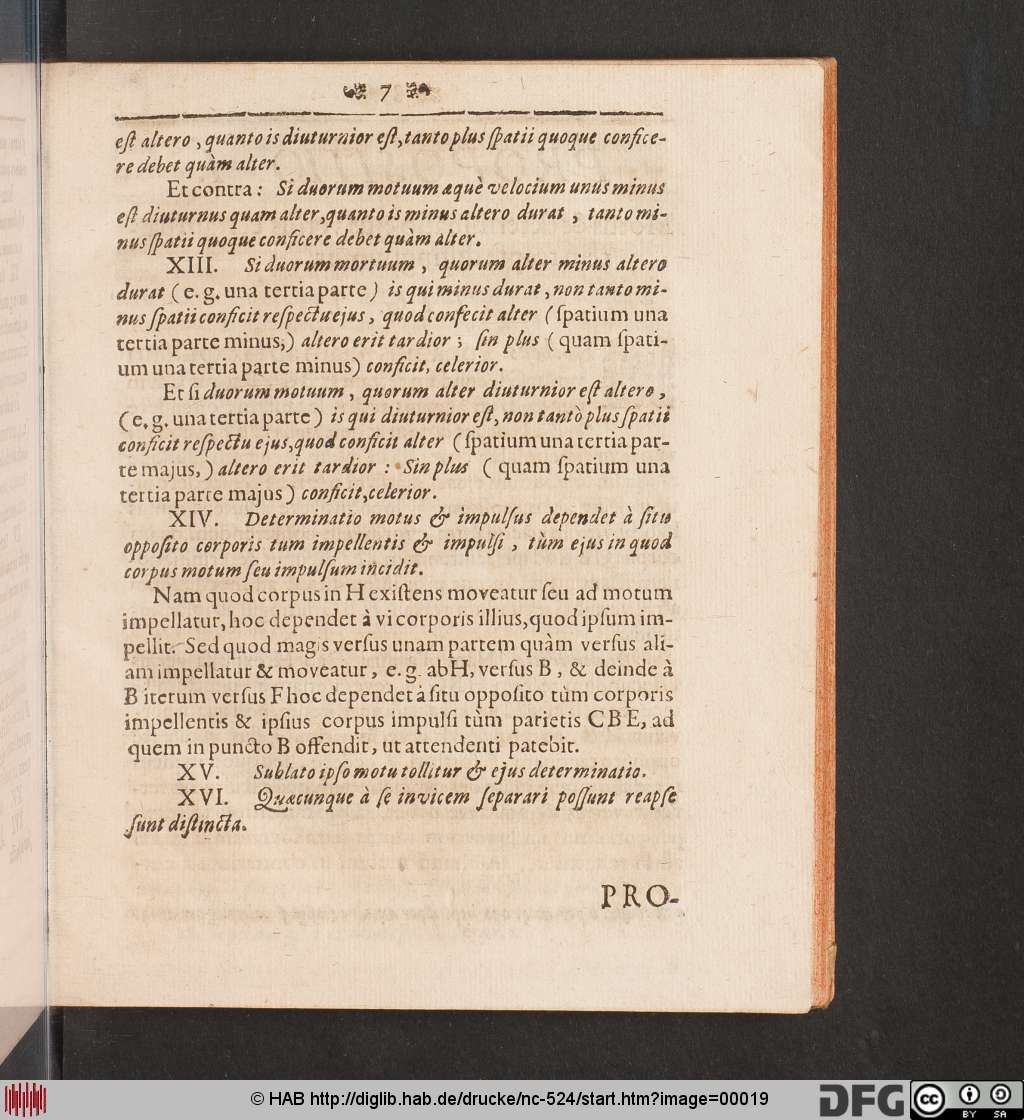 7
est altero, quanto is diuturnior est, tanto plus spatii quoque confice-
re debet quàm alter.
Et contra: Si duorum motuum æquè velocium unus minus
est diuturnus quam alter, quanto is minus altero durat, tanto mi-
nus spatii quoque conficere debet quàm alter.
XIII. Si duorum mortuum, quorum alter minus altero
durat (e. g. una tertia parte) is qui minus durat, non tanto mi-
nus spatii conficit respectu ejus, quod confecit alter (spatium una
tertia parte minus,) altero erit tardior; sin plus (quam spati-
um una tertia parte minus) conficit, celerior.
Et si duorum motuum, quorum alter diuturnior est altero,
(e. g. una tertia parte) is qui diuturnior est, non tantò plus spatii
conficit respectu ejus, quod conficit alter (spatium una tertia par-
te majus,) altero erit tardior: Sin plus (quam spatium una
tertia parte majus) conficit, celerior.
XIV. Determinatio motus & impulsus dependet à situ
opposito corporis tum impellentis & impulsi, tùm ejus in quod
corpus motum seu impulsum incidit.
Nam quod corpus in H existens moveatur seu ad motum
impellatur, hoc dependet à vi corporis illius, quod ipsum im-
pellit. Sed quod magis versus unam partem quàm versus ali-
am impellatur & moveatur, e. g. ab H, versus B, & deinde à
B iterum versus F hoc dependet à situ opposito tùm corporis
impellentis & ipsius corpus impulsi tùm parietis CBE, ad
quem in puncto B offendit, ut attendenti patebit.
XV. Sublato ipso motu tollitur & ejus determinatio.
XVI. Quæcunque à se invicem separari possunt reapse
sunt distincta.
PRO-
© HAB http://diglib.hab.de/drucke/nc-524/start.htm?image=00019
DFG
cc
BY SA